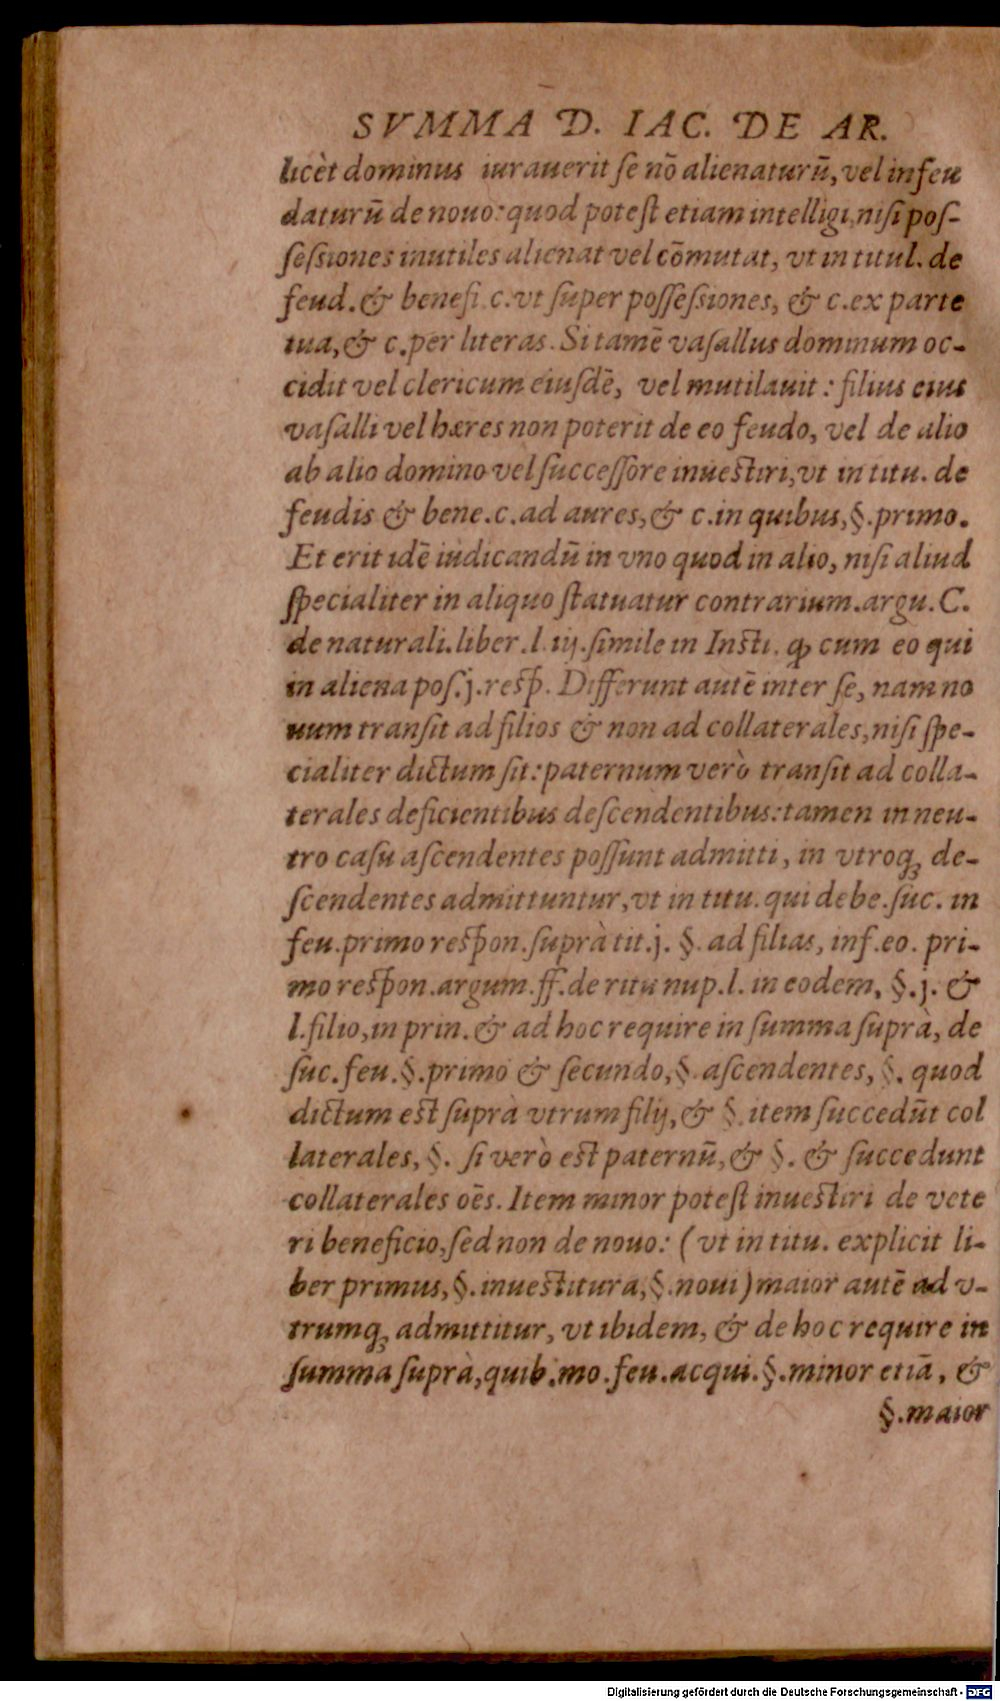 SVMMA D. IAC. DE AR.
licèt dominus iurauerit ſe nõ alienaturũ, vel infeu
daturũ de nouo: quod poteſt etiam intelligi, niſi poſ-
ſeſsiones inutiles alienat vel cõmutat, vt in titul. de
feud. & benefi. c. vt ſuper poſſeſsiones, & c. ex parte
tua, & c. per literas. Si tamẽ vaſallus dominum oc-
cidit vel clericum eiuſdẽ, vel mutilauit: filius eius
vaſalli vel hæres non poterit de eo feudo, vel de alio
ab alio domino vel ſucceſſore inueſtiri, vt in titu. de
feudis & bene. c. ad aures, & c. in quibus, §. primo.
Et erit idẽ iudicandũ in vno quod in alio, niſi aliud
ſpecialiter in aliquo ſtatuatur contrarium. argu. C.
de naturali. liber. l. iij. ſimile in Inſti. ꝙ cum eo qui
in aliena poſ. j. reſp̃. Differunt autẽ inter ſe, nam no
uum tranſit ad filios & non ad collaterales, niſi ſpe-
cialiter dictum ſit: paternum verò tranſit ad colla-
terales deficientibus deſcendentibus: tamen in neu-
tro caſu aſcendentes poſſunt admitti, in vtroq; de-
ſcendentes admittuntur, vt in titu. qui debe. ſuc. in
feu. primo reſpon. ſuprà tit. j. §. ad filias, inf. eo. pri-
mo reſpon. argum. ff. de ritu nup. l. in eodem, §. j. &
l. filio, in prin. & ad hoc require in ſumma ſuprà, de
ſuc. feu. §. primo & ſecundo, §. aſcendentes, §. quod
dictum eſt ſuprà vtrum filij, & §. item ſuccedũt col
laterales, §. ſi verò eſt paternũ, & §. & ſuccedunt
collaterales oẽs. Item minor poteſt inueſtiri de vete
ri beneficio, ſed non de nouo: (vt in titu. explicit li-
ber primus, §. inueſtitura, §. noui) maior autẽ ad v-
trumq; admittitur, vt ibidem, & de hoc require in
ſumma ſuprà, quib. mo. feu. acqui. §. minor etiã, &
§. maior
Digitalisierung gefördert durch die Deutsche Forschungsgemeinschaft - DFG